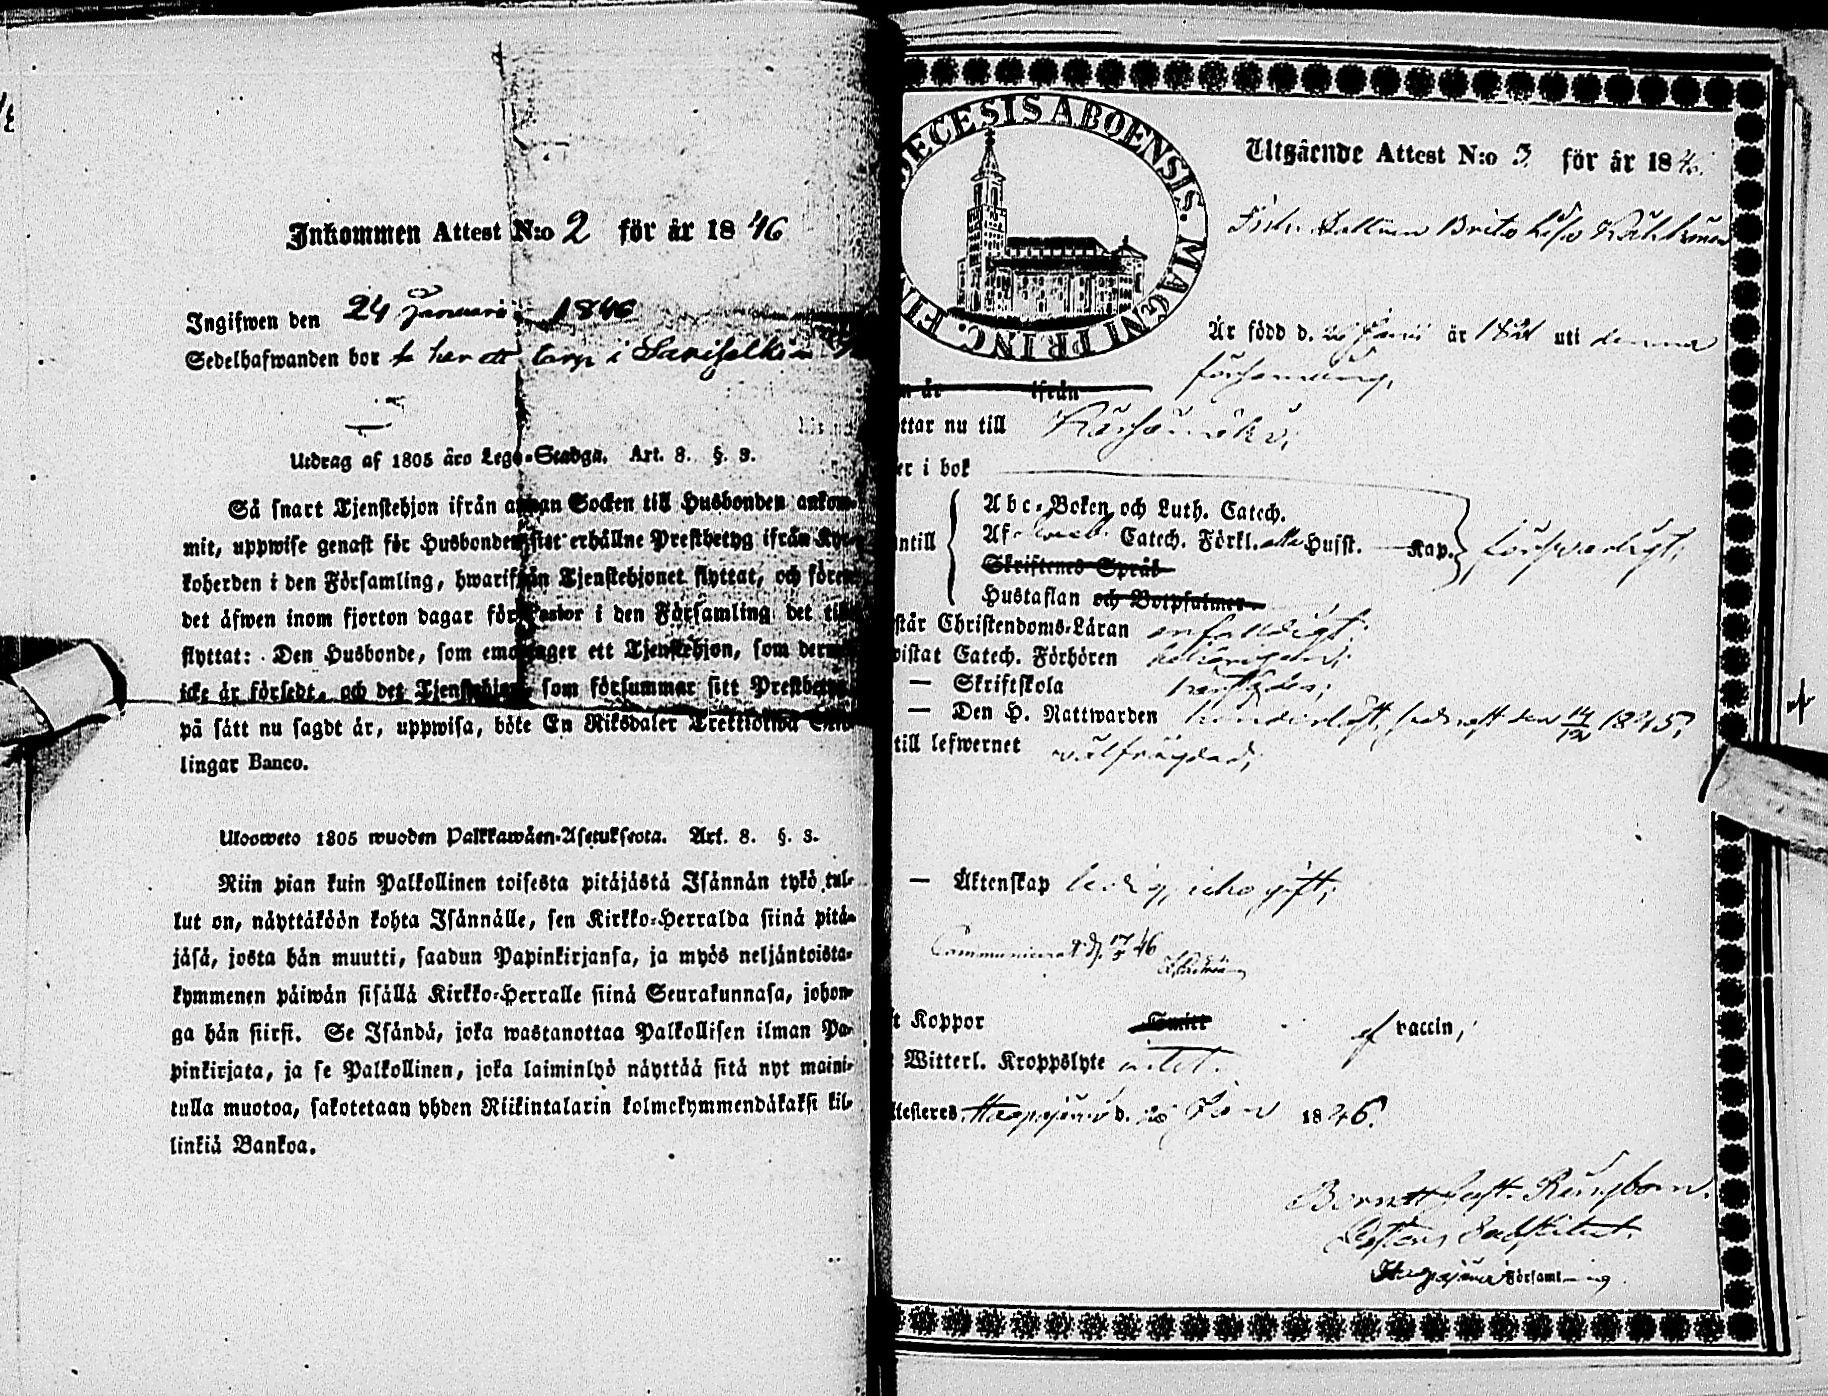 Inkommen Attest N:o 2 för år 1846
Ingifwen den 24 Januari 1846
Sedelhafwanden bor torp i
Utdrag af 1805 års Lego-Stadga. Art. 8. §. 3.
Så snart Tjenstehjon ifrån annan Socken till Husbonden ankom-
mit, uppwise genast för Husbonden sitt erhållne Prestbetyg ifrån Kyr-
koherden i den Församling, hwarifrån Tjenstehjonet flyttat, och förete
det äfwen inom fjorton dagar för Pastor i den Församling det till-
flyttat: Den Husbonde, som emottager ett Tjenstehjon, som dermed
icke är försedt, och det Tjenstehjon, som försummar sitt Prestbetyg,
på sätt nu sagdt är, uppwisa, böte En Riksdaler Trettiotwå Skil-
lingar Banco.
Ulosweto 1805 wuoden Palkkawäen-Asetuksesta. Art. 8. §. 3.
Niin pian kuin Palkollinen toisesta pitäjästä Isännän tykö tul-
lut on, näyttäköön kohta Isännälle, sen Kirkko-Herralda siinä pitä-
jäsä, josta hän muutti, saadun Papinkirjansa, ja myös neljäntoista-
kymmenen päiwän sisällä Kirkko-Herralle siinä Seurakunnasa, johon-
ga hän siirsi. Se Isändä, joka wastanottaa Palkollisen ilman Pa-
pinkirjata, ja se Palkollinen, joka laiminlyö näyttää sitä nyt maini-
tulla muotoa, sakotetaan yhden Riikintalarin kolmekymmendäkaksi kil-
linkiä Bankoa.
DECESIS ABOENSIS. MAGNI PRINC. FIN
Utgående Attest N:o 3 för år 1846.
Brita Lisa
Är född d. 20 Junii år 1821 uti denna
församling,
n år ifrån
ttar nu till Kärsämäki,
er i bok
Abc-Boken och Luth. Catech.
ntill Af Catech. Förkl. alla Husst. Kap. försvarligt,
Skriftenes Språk
Hustaflan och Botpsalmer.
står Christendoms-Läran enfaldigt,
wistat Catech. Förhören behörigen,
— Skriftskola
— Den H. Nattwarden sednast den 14/12 1845,
till lefwernet välfrägdad,
— Äktenskap ledig, icke gift,
Communicerat d. 17/5 46
t Koppor Smitt af vaccin,
Witterl. Kroppslyte intet.
ttesteres Haapajärvi d. 20 Jan 1846.
Berndt
Pastors Substitut.
Haapajärvi Församling.